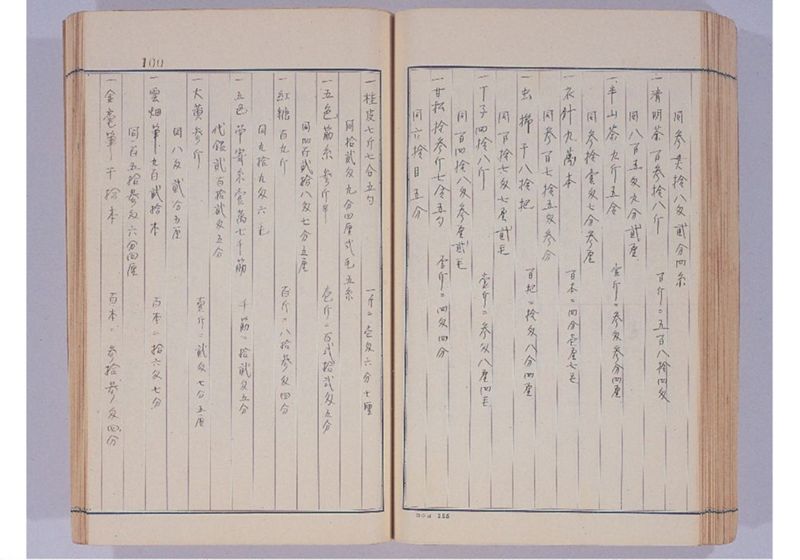 同参貫拾八匁貳分四糸
一清明茶百参拾八斤　百斤ニ五百八拾四匁
同八百五匁九分貳厘
一半山茶九斤五合　壹斤ニ参匁参分四厘
同参拾壹匁七分参厘
一衣針九萬本　百本ニ四分壹厘七毛
同参百七拾五匁参分
一虫掃千八拾把　百把ニ拾匁八分四厘
同百拾七匁七厘貳毛
一丁子四拾八斤　壹斤ニ参匁八厘四毛
同百四拾八匁参厘貳毛
一甘松拾参斤七合五勺　壹斤ニ四匁四分
同六拾目五分
100
一桂皮七斤七合五勺　一斤ニ壱匁六分七厘
同拾貳匁九分四厘弐毛五糸
一五色筋糸参斤半　壱斤ニ百弐拾弐匁五分
同四百貳拾八匁七分五厘
一紅糖百九斤　百斤ニ八拾参匁四分
同九拾九匁六毛
一五色常寄糸壹萬七千筋　千筋ニ拾貳匁五分
代銀貳百拾貳匁五分
一大黄参斤　壹斤ニ貳匁七分五厘
同八匁貳分五厘
一雲烟筆九百貳拾本　百本ニ拾六匁七分
同百五拾参匁六分四厘
一金毫筆千拾本　百本ニ参拾参匁四分